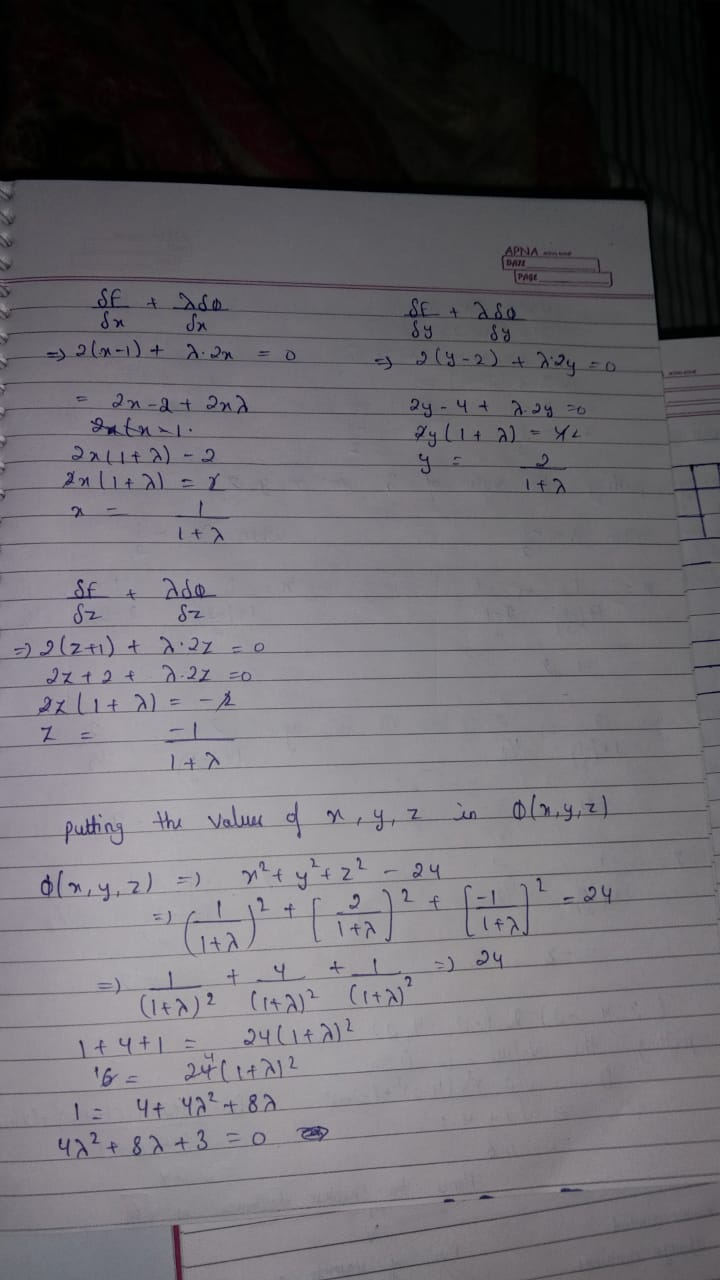 APNA
DATE
PAGE
δF/δx + λδφ/δx
=> 2(x-1) + λ.2x = 0
= 2x-2 + 2xλ
2x(1+λ) - 2
2x(1+λ) = 2
x = 1/(1+λ)
δF/δy + λδφ/δy
=> 2(y-2) + λ.2y = 0
2y - 4 + λ.2y = 0
2y(1+λ) = 4
y = 2/(1+λ)
δF/δz + λδφ/δz
=> 2(z+1) + λ.2z = 0
2z + 2 + λ.2z = 0
2z(1+λ) = -2
z = -1/(1+λ)
putting the values of x, y, z in φ(x,y,z)
φ(x,y,z) => x²+ y²+ z² - 24
=> (1/(1+λ))² + [2/(1+λ)]² + [-1/(1+λ)]² - 24
=> 1/(1+λ)² + 4/(1+λ)² + 1/(1+λ)² => 24
1+4+1 = 24(1+λ)²
6 = 24(1+λ)²
1 = 4+ 4λ² + 8λ
4λ² + 8λ + 3 = 0